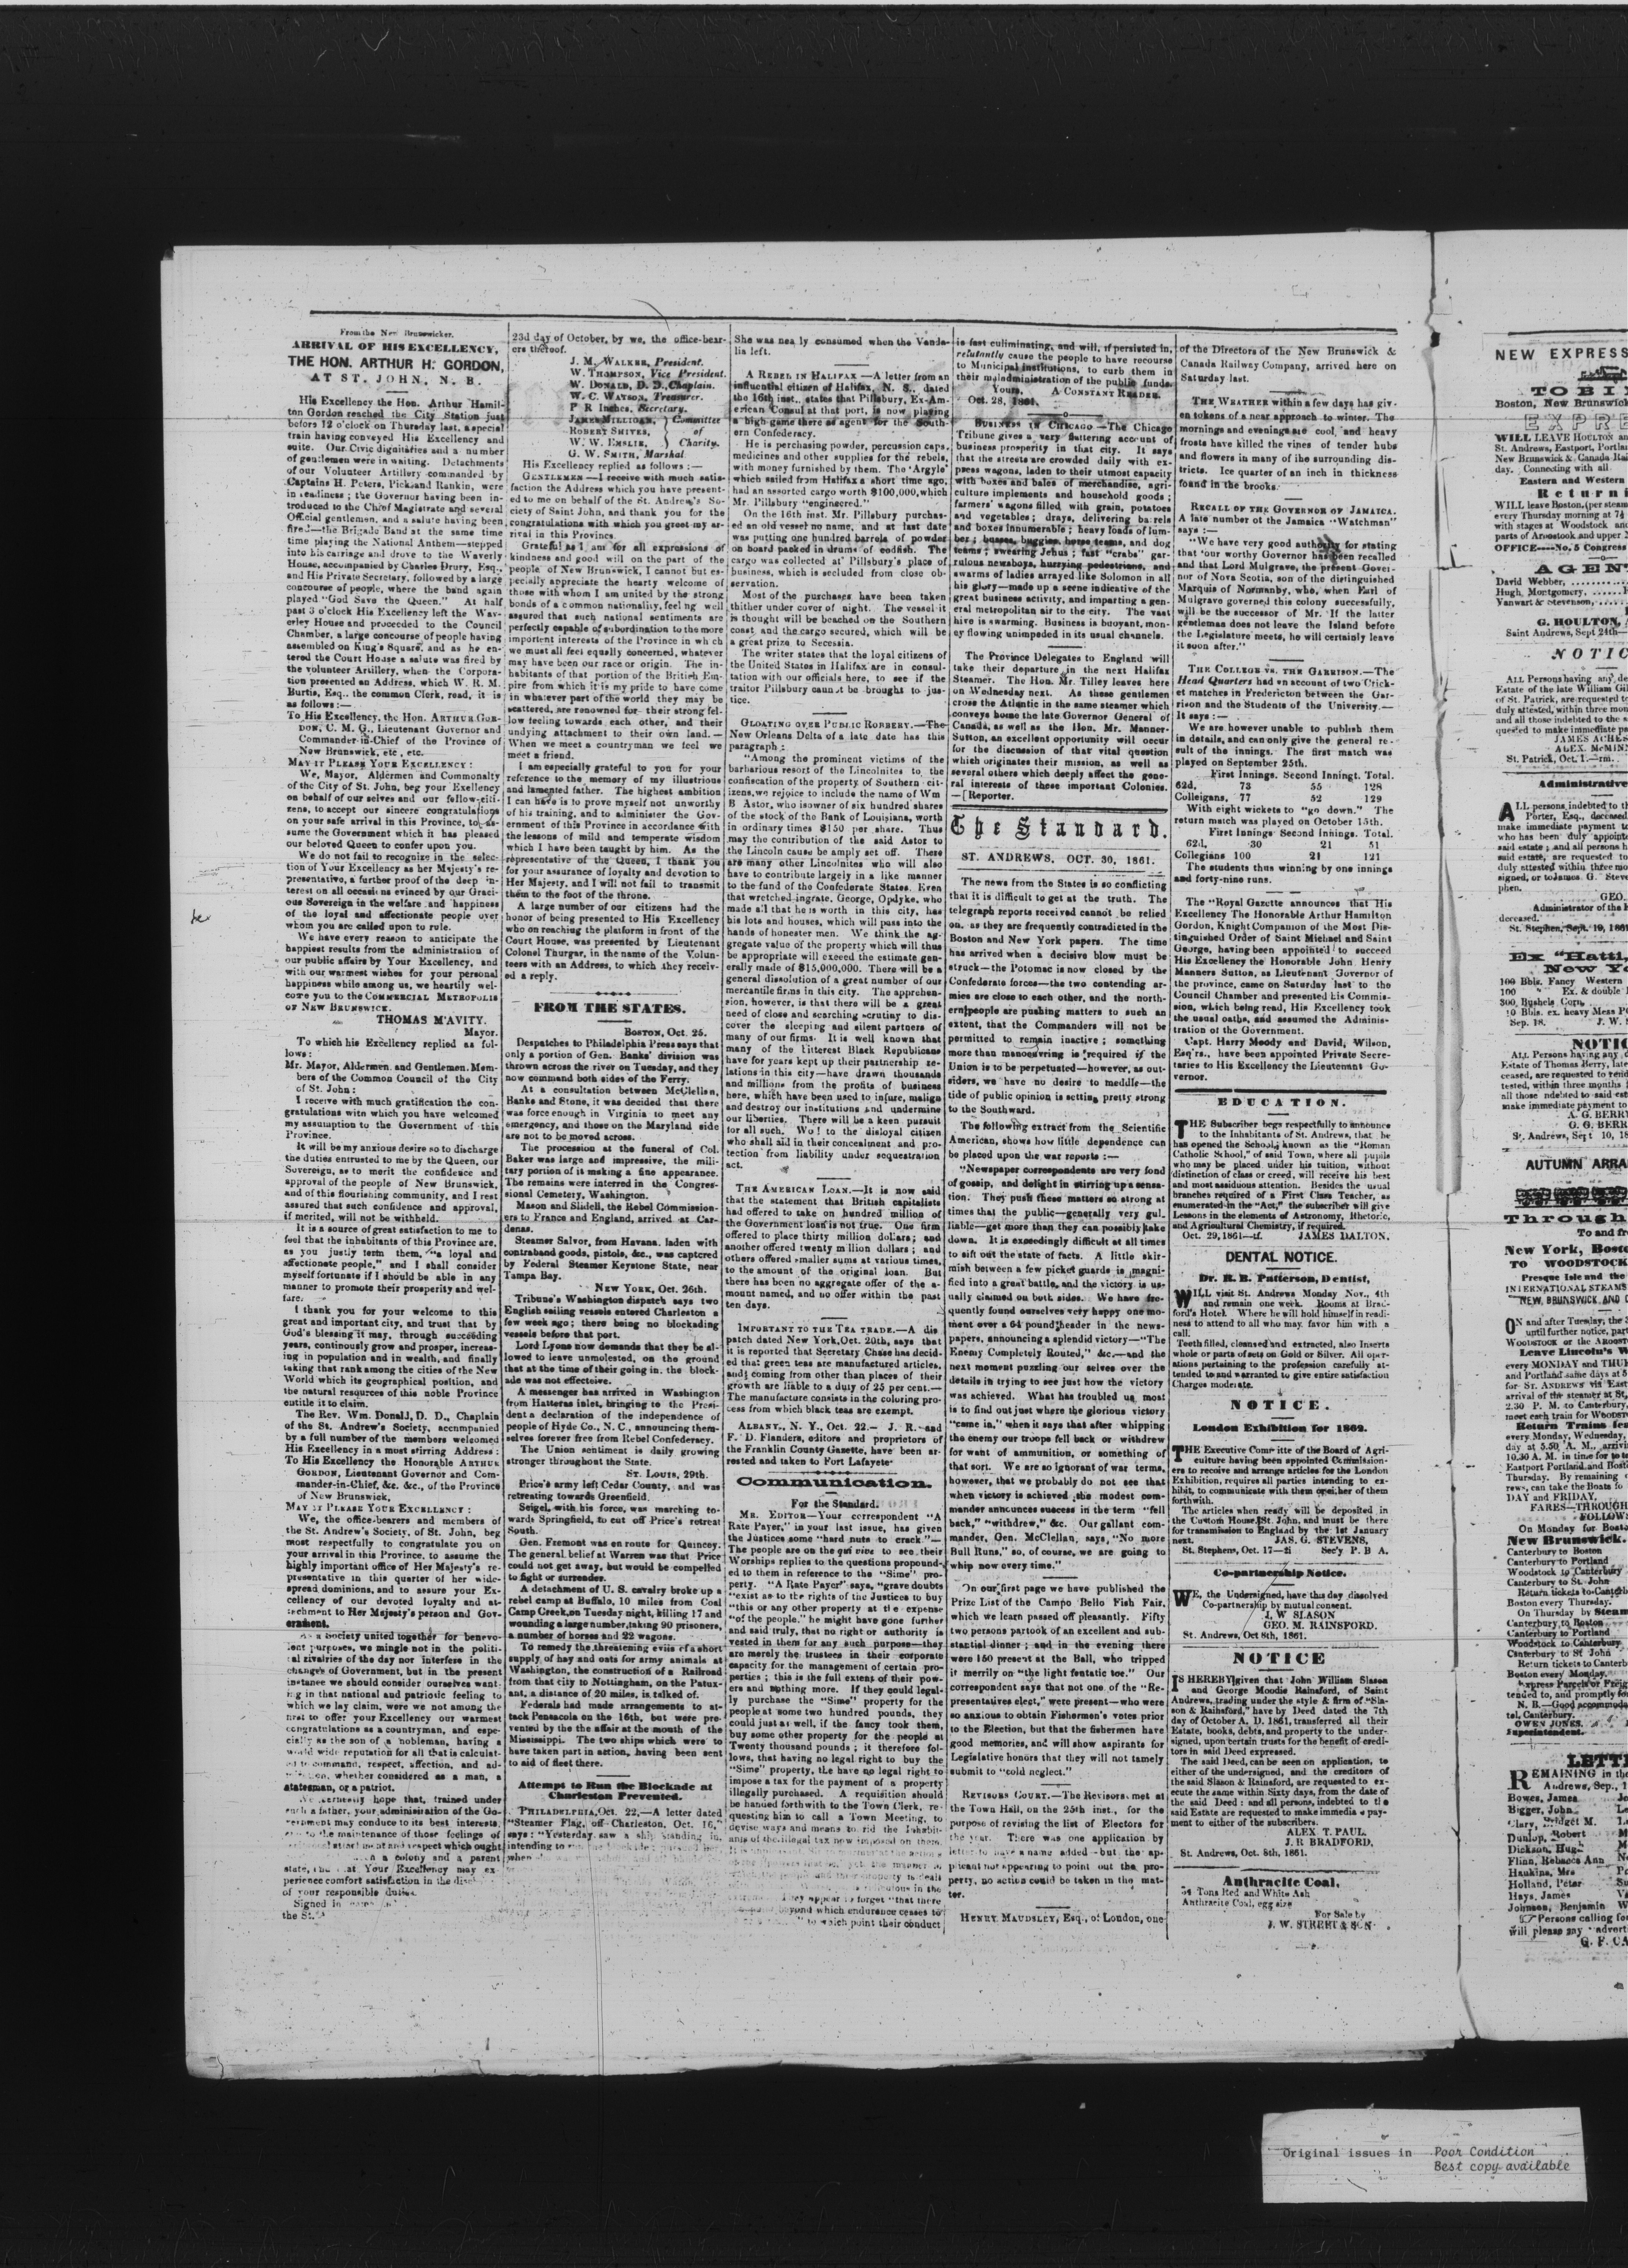 From the New Brunswicker.
ARRIVAL OF HIS EXCELLENCY,
THE HON. ARTHUR H. GORDON,
AT ST. JOHN, N. B.
His Excellency the Hon. Arthur Hamil-
ton Gordon reached the City Station just
before 12 o'clock on Thursday last, a special
train having conveyed His Excellency and
suite. Our Civic dignitaries and a number
of gentlemen were in waiting. Detachments
of our Volunteer Artillery commanded by
Captains H. Peters, Pick and Rankin, were
in readiness; the Governor having been in-
troduced to the Chief Magistrate and several
Official gentlemen, and a salute having been
fired—the Brigade Band at the same time
time playing the National Anthem—stepped
into his carriage and drove to the Waverly
House, accompanied by Charles Drury, Esq.,
and His Private Secretary, followed by a large
concourse of people, where the band again
played "God Save the Queen." At half
past 3 o'clock His Excellency left the Wav-
erley House and proceeded to the Council
Chamber, a large concourse of people having
assembled on King's Square, and as he en-
tered the Court House a salute was fired by
the volunteer Artillery, when the Corpora-
tion presented an Address, which W. R. M.
Burtis, Esq., the common Clerk, read, it is
as follows:—
To His Excellency, the Hon. ARTHUR GOR-
DON, C. M. G., Lieutenant Governor and
Commander-in-Chief of the Province of
New Brunswick, etc , etc.
MAY IT PLEASE YOUR EXCELLENCY :
We, Mayor, Aldermen and Commonalty
of the City of St. John, beg your Exellency
on behalf of our selves and our fellow-citi-
zens, to accept our sincere congratulations
on your safe arrival in this Province, to as-
sume the Government which it has pleased
our beloved Queen to confer upon you.
We do not fail to recognize in the selec-
tion of Your Excellency as her Majesty's re-
presentative, a further proof of the deep in-
terest on all occasions evinced by our Graci-
ous Sovereign in the welfare and happiness
of the loyal and affectionate people over
whom you are called upon to rule.
We have every reason to anticipate the
happiest results from the administration of
our public affairs by Your Excellency, and
with our warmest wishes for your personal
happiness while among us, we heartily wel-
come you to the COMMERCIAL METROPOLIS
OF NEW BRUNSWICK.
THOMAS M'AVITY.
Mayor.
To which his Excellency replied as fol-
lows:
Mr. Mayor, Aldermen, and Gentlemen, Mem-
bers of the Common Council of the City
of St. John:
I receive with much gratification the con-
gratulations with which you have welcomed
my assumption to the Government of this
Province.
It will be my anxious desire so to discharge
the duties entrusted to me by the Queen, our
Sovereign, as to merit the confidence and
approval of the people of New Brunswick,
and of this flourishing community, and I rest
assured that such confidence and approval,
if merited, will not be withheld.
It is a source of great satisfaction to me to
feel that the inhabitants of this Province are,
as you justly term them, "a loyal and
affectionate people," and I shall consider
myself fortunate if I should be able in any
manner to promote their prosperity and wel-
fare.
I thank you for your welcome to this
great and important city, and trust that by
God's blessing it may, through succeeding
years, continously grow and prosper, increas-
ing in population and in wealth, and finally
taking that rank among the cities of the New
World which its geographical position, and
the natural resources of this noble Province
entitle it to claim.
The Rev. Wm. Donald, D. D., Chaplain
of the St. Andrew's Society, accompanied
by a full number of the members welcomed
His Excellency in a most stirring Address:
To His Excellency the Honorable ARTHUR
GORDON, Lieutenant Governor and Com-
mander-in-Chief, &c. &c., of the Province
of New Brunswick,
MAY IT PLEASE YOUR EXCELLENCY :
We, the office-bearers and members of
the St. Andrew's Society, of St. John, beg
most respectfully to congratulate you on
your arrival in this Province, to assume the
highly important office of Her Majesty's re-
presentative in this quarter of her wide-
spread dominions, and to assure your Ex-
cellency of our devoted loyalty and at-
tachment to Her Majesty's person and Gov-
ernment.
As a Society united together for benevo-
lent purposes, we mingle not in the politi-
cal rivalries of the day nor interfere in the
changes of Government, but in the present
instance we should consider ourselves want-
ing in that national and patriotic feeling to
which we lay claim, were we not among the
first to offer your Excellency our warmest
congratulations as a countryman, and espe-
cially as the son of a nobleman, having a
world wide reputation for all that is calculat-
ed to command, respect, affection, and ad-
miration, whether considered as a man, a
statesman, or a patriot.
We earnestly hope that, trained under
such a father, your administration of the Go-
vernment may conduce to its best interests,
to the maintenance of those feelings of
attachment and respect which ought
a colony and a parent
state, Your Excellency may ex-
perience comfort satisfaction in the
of your responsible duties.
Signed in
the St.
23d day of October, by we, the office-bear-
ers thereof.
J. M. WALKER, President.
W. THOMPSON, Vice President.
W. DONALD, D. D., Chaplain.
W. C. WATSON, Treasurer.
P R Inches, Secretary.
JAMES MILLIGAN, } Committee
ROBERT SHIVES, of
W. W. EMSLIE, Charity.
G. W. SMITH, Marshal
His Excellency replied as follows:—
GENTLEMEN—I receive with much satis-
faction the Address which you have present-
ed to me on behalf of the St. Andrew's So-
ciety of Saint John, and thank you for the
congratulations with which you greet my ar-
rival in this Province.
Grateful as I am for all expressions of
kindness and good will on the part of the
people of New Brunswick, I cannot but es-
pecially appreciate the hearty welcome of
those with whom I am united by the strong
bonds of a common nationality, feeling well
assured that such national sentiments are
perfectly capable of subordination to the more
important interests of the Province in wh ch
we must all feel equally concerned, whatever
may have been our race or origin. The in-
habitants of that portion of the British Em-
pire from which it is my pride to have come
in whatever part of the world they may be
scattered, are renowned for their strong fel-
low feeling towards each other, and their
undying attachment to their own land.—
When we meet a countryman we feel we
meet a friend.
I am especially grateful to you for your
reference to the memory of my illustrious
and lamented father. The highest ambition
I can have is to prove myself not unworthy
of his training, and to administer the Gov-
ernment of this Province in accordance with
the lessons of mild and temperate wisdom
which I have been taught by him. As the
representative of the Queen, I thank you
for your assurance of loyalty and devotion to
Her Majesty, and I will not fail to transmit
them to the foot of the throne.
A large number of our citizens had the
honor of being presented to His Excellency
who on reaching the platform in front of the
Court House, was presented by Lieutenant
Colonel Thurgar, in the name of the Volun-
teers with an Address, to which they receiv-
ed a reply.
FROM THE STATES.
BOSTON, Oct. 25.
Despatches to Philadelphia Press says that
only a portion of Gen. Banks' division was
thrown across the river on Tuesday, and they
now command both sides of the Ferry.
At a consultation between McClellan,
Banks and Stone, it was decided that there
was force enough in Virginia to meet any
emergency, and those on the Maryland side
are not to be moved across.
The procession at the funeral of Col.
Baker was large and impressive, the mili-
tary portion of it making a fine appearance.
The remains were interred in the Congres-
sional Cemetery, Washington.
Mason and Slidell, the Rebel Commission-
ers to France and England, arrived at Car-
denas.
Steamer Salvor, from Havana, laden with
contraband goods, pistols, &c., was captcred
by Federal Steamer Keystone State, near
Tampa Bay.
NEW YORK, Oct. 26th.
Tribune's Washington dispatch says two
English sailing vessels entered Charleston a
few week ago; there being no blockading
vessels before that port.
Lord Lyons now demands that they be al-
lowed to leave unmolested, on the ground
that at the time of their going in, the block-
ade was not effecteive.
A messenger has arrived in Washington
from Hatteras inlet, bringing to the Presi-
dent a declaration of the independence of
people of Hyde Co., N. C., announcing them-
selves forever free from Rebel Confederacy.
The Union sentiment is daily growing
stronger throughout the State.
ST. LOUIS, 29th.
Price's army left Cedar County, and was
retreating towards Greenfield.
Seigel, with his force, was marching to-
wards Springfield, to cut off Price's retreat
South.
Gen. Fremont was en route for Quincey.
The general belief at Warren was that Price
could not get away, but would be compelled
to fight or surrender.
A detachment of U. S. cavalry broke up a
rebel camp at Buffalo, 10 miles from Coal
Camp Creek, on Tuesday night, killing 17 and
wounding a large number, taking 90 prisoners,
a number of horses and 22 wagons.
To remedy the threatening evils of a short
supply of hay and oats for army animals at
Washington, the construction of a Railroad
from that city to Nottingham, on the Patux-
ant, a distance of 20 miles, is talked of.
Federals had made arrangements to at-
tack Pensacola on the 16th, but were pre-
vented by the the affair at the mouth of the
Mississippi. The two ships which were to
have taken part in action, having been sent
to aid of fleet there.
Attempt to Run the Blockade at
Charleston Prevented.
PHILADELPHIA, Oct. 22,—A letter dated
"Steamer Flag, off Charleston, Oct. 16,"
says: "Yesterday saw a ship standing in,
intending to
when
She was nea ly consumed when the Vanda-
lia left.
A REBEL IN HALIFAX—A letter from an
influential citizen of Halifax, N. S., dated
the 16th inst., states that Pillsbury, Ex-Am-
erican Consul at that port, is now playing
a high game there as agent for the South-
ern Confederacy.
He is perchasing powder, percussion caps,
medicines and other supplies for the rebels,
with money furnished by them. The 'Argyle'
which sailed from Halifax a short time ago,
had an assorted cargo worth $100,000, which
Mr. Pillsbury "engineered."
On the 16th inst. Mr. Pillsbury purchas-
ed an old vessel no name, and at last date
was putting one hundred barrels of powder
on board packed in drums of codfish. The
cargo was collected at Pillsbury's place of
business, which is secluded from close ob-
servation.
Most of the purchases have been taken
thither under cover of night. The vessel it
is thought will be beached on the Southern
coast and the cargo secured, which will be
a great prize to Secessia.
The writer states that the loyal citizens of
the United States in Halifax are in consul-
tation with our officials here, to see if the
traitor Pillsbury cannot be brought to jus-
tice.
GLOATING OVER PUBLIC ROBBERY.—The
New Orleans Delta of a late date has this
paragraph:
"Among the prominent victims of the
barbarious resort of the Lincolnites to the
confiscation of the property of Southern cit-
izens, we rejoice to include the name of Wm
B Astor, who isowner of six hundred shares
of the stock of the Bank of Louisiana, worth
in ordinary times $150 per share. Thus
may the contribution of the said Astor to
the Lincoln cause be amply set off. There
are many other Lincolnites who will also
have to contribute largely in a like manner
to the fund of the Confederate States. Even
that wretched ingrate, George, Opdyke, who
made all that he is worth in this city, has
his lots and houses, which will pass into the
hands of honester men. We think the ag-
gregate value of the property which will thus
be appropriate will exceed the estimate gen-
erally made of $15,000,000. There will be a
general dissolution of a great number of our
mercantile firms in this city. The apprehen-
sion, however, is that there will be a great
need of close and searching scrutiny to dis-
cover the sleeping and silent partners of
many of our firms. It is well known that
many of the bitterest Black Republicans
have for years kept up their partnership re-
lations in this city—have drawn thousands
and millions from the profits of business
here, which have been used to injure, malign
and destroy our institutions and undermine
our liberties. There will be a keen pursuit
for all such. Wo! to the disloyal citizen
who shall aid in their concealment and pro-
tection from liability under sequestration
act.
THE AMERICAN LOAN.—It is now said
that the statement that British capitalists
had offered to take on hundred million of
the Government loan is not true. One firm
offered to place thirty million dollars; and
another offered twenty million dollars; and
others offered smaller sums at various times,
to the amount of the original loan. But
there has been no aggregate offer of the a-
mount named, and no offer within the past
ten days.
IMPORTANT TO THE TEA TRADE.—A dis
patch dated New York, Oct. 20th, says that
it is reported that Secretary Chase has decid-
ed that green teas are manufactured articles,
and coming from other than places of their
growth are liable to a duty of 25 per cent.—
The manufacture consists in the coloring pro-
cess from which black teas are exempt.
ALBANY, N. Y., Oct. 22.— J. R. and
F. D. Flanders, editors and proprietors of
the Franklin County Gazette, have been ar-
rested and taken to Fort Lafayete
Communication.
For the Standard.
MR. EDITOR—Your correspondent "A
Rate Payer," in your last issue, has given
the Justices some "hard nuts to crack."—
The people are on the qui vive to see their
Worships replies to the questions propound-
ed to them in reference to the "Sime" pro-
perty. "A Rate Payer" says, "grave doubts
"exist as to the rights of the Justices to buy
"this or any other property at the expense
"of the people," he might have gone further
and said truly, that no right or authority is
vested in them for any such purpose—they
are merely the trustees in their corporate
capacity for the management of certain pro-
perties; this is the full extent of their pow-
ers and nothing more. If they could legal-
ly purchase the "Sime" property for the
people at some two hundred pounds, they
could just as well, if the fancy took them,
buy some other property for the people at
Twenty thousand pounds; it therefore fol-
lows, that having no legal right to buy the
"Sime" property, the have no legal right to
impose a tax for the payment of a property
illegally purchased. A requisition should
be handed forthwith to the Town Clerk, re-
questing him to call a Town Meeting, to
devise ways and means to rid the Inhabit-
ants of the illegal tax now imposed on them.
in the
They appear to forget "that there
beyond which endurance ceases to
" to which point their conduct
is fast culiminating, and will, if persisted in,
relutantly cause the people to have recourse
to Municipal institutions, to curb them in
their maladministration of the public funds.
Yours, A CONSTANT READER.
Oct. 28, 1861.
BUSINESS IN CHICAGO—The Chicago
Tribune gives a very flattering account of
business prosperity in that city. It says
that the streets are crowded daily with ex-
press wagons, laden to their utmost capacity
with boxes and bales of merchandise, agri-
culture implements and household goods;
farmers' wagons filled with grain, potatoes
and vegetables; drays, delivering barrels
and boxes innumerable; heavy loads of lum-
ber; busses, buggies, horse teams, and dog
teams; swearing Jehus; fast "crabs" gar-
rulous newsboys, hurrying pedestrians, and
swarms of ladies arrayed like Solomon in all
his glory—made up a scene indicative of the
great business activity, and imparting a gen-
eral metropolitan air to the city. The vast
hive is swarming. Business is buoyant, mon-
ey flowing unimpeded in its usual channels.
The Province Delegates to England will
take their departure in the next Halifax
Steamer. The Hon. Mr. Tilley leaves here
on Wednesday next. As these gentlemen
cross the Atlantic in the same steamer which
conveys home the late Governor General of
Canada, as well as the Hon. Mr. Manners-
Sutton, an excellent opportunity will occur
for the discussion of that vital question
which originates their mission, as well as
several others which deeply affect the gene-
ral interests of these important Colonies.
—[Reporter.
The Standard.
ST. ANDREWS, OCT. 30, 1861.
The news from the States is so conflicting
that it is difficult to get at the truth. The
telegraph reports received cannot be relied
on, as they are frequently contradicted in the
Boston and New York papers. The time
has arrived when a decisive blow must be
struck—the Potomac is now closed by the
Confederate forces—the two contending ar-
mies are close to each other, and the north-
ern people are pushing matters to such an
extent, that the Commanders will not be
permitted to remain inactive; something
more than manoeuvring is required if the
Union is to be perpetuated—however, as out-
siders, we have no desire to meddle—the
tide of public opinion is setting pretty strong
to the Southward.
The following extract from the Scientific
American, shows how little dependence can
be placed upon the war reports:—
"Newspaper correspondents are very fond
of gossip, and delight in stirring up a sensa-
tion. They push these matters so strong at
times that the public—generally very gul-
liable—get more than they can possibly take
down. It is exceedingly difficult at all times
to sift out the state of facts. A little skir-
mish between a few picket guards is magni-
fied into a great battle, and the victory is us-
ually claimed on both sides. We have fre-
quently found ourselves very happy one mo-
ment over a 64 pound header in the news-
papers, announcing a splendid victory—"The
Enemy Completely Routed," &c.—and the
next moment puzzling our selves over the
details in trying to see just how the victory
was achieved. What has troubled us most
is to find out just where the glorious victory
"came in," when it says that after whipping
the enemy our troops fell back or withdrew
for want of ammunition, or something of
that sort. We are so ignorant of war terms,
however, that we probably do not see that
when victory is achieved the modest com-
mander announces success in the term "fell
back," "withdrew," &c. Our gallant com-
mander, Gen. McClellan, says, "No more
Bull Runs," so, of course, we are going to
whip now every time."
On our first page we have published the
Prize List of the Campo Bello Fish Fair,
which we learn passed off pleasantly. Fifty
two persons partook of an excellent and sub-
stantial dinner; and in the evening there
were 150 present at the Ball, who tripped
it merrily on "the light fentatic toe." Our
correspondent says that not one of the "Re-
presentatives elect," were present—who were
so anxious to obtain Fishermen's votes prior
to the Election, but that the fishermen have
good memories, and will show aspirants for
Legislative honors that they will not tamely
submit to "cold neglect."
REVISORS COURT.—The Revisors met at
the Town Hall, on the 25th inst., for the
purpose of revising the list of Electors for
the year. There was one application by
letter to have a name added—but the ap-
plicant not appearing to point out the pro-
perty, no action could be taken in the mat-
ter.
HENRY MAUDSLEY, Esq., of London, one
of the Directors of the New Brunswick &
Canada Railway Company, arrived here on
Saturday last.
THE WEATHER within a few days has giv-
en tokens of a near approach to winter. The
mornings and evenings are cool, and heavy
frosts have killed the vines of tender hubs
and flowers in many of the surrounding dis-
tricts. Ice quarter of an inch in thickness
found in the brooks.
RECALL OF THE GOVERNOR OF JAMAICA.
A late number of the Jamaica "Watchman"
says:—
"We have very good authority for stating
that 'our worthy Governor has been recalled
and that Lord Mulgrave, the present Gover-
nor of Nova Scotia, son of the distinguished
Marquis of Normanby, who, when Earl of
Mulgrave governed this colony successfully,
will be the successor of Mr. If the latter
gentleman does not leave the Island before
the Legislature meets, he will certainly leave
it soon after."
THE COLLEGE vs. THE GARRISON.—The
Head Quarters had an account of two Crick-
et matches in Fredericton between the Gar-
rison and the Students of the University.—
It says:—
We are however unable to publish them
in details, and can only give the general re-
sult of the innings. The first match was
played on September 25th.
First Innings. Second Innings. Total.
62d, 73 55 128
Colleigans, 77 52 129
With eight wickets to "go down." The
return match was played on October 15th.
First Innings Second Innings. Total.
62d, 30 21 51
Collegians 100 21 121
The students thus winning by one innings
and forty-nine runs.
The "Royal Gazette announces that His
Excellency The Honorable Arthur Hamilton
Gordon, Knight Companion of the Most Dis-
tinguished Order of Saint Michael and Saint
George, having been appointed to succeed
His Excellency the Honorable John Henry
Manners Sutton, as Lieutenant Governor of
the province, came on Saturday last to the
Council Chamber and presented his Commis-
sion, which being read, His Excellency took
the usual oaths, and assumed the Adminis-
tration of the Government.
Capt. Harry Moody and David, Wilson,
Esq'rs., have been appointed Private Secre-
taries to His Excellency the Lieutenant Go-
vernor.
EDUCATION.
THE Subscriber begs respectfully to announce
to the Inhabitants of St. Andrews, that he
has opened the School, known as the "Roman
Catholic School," of said Town, where all pupils
who may be placed under his tuition, without
distinction of class or creed, will receive his best
and most assiduous attention. Besides the usual
branches required of a First Class Teacher, as
enumerated in the "Act," the subscriber will give
Lessons in the elements of Astronomy, Rhetoric,
and Agricultural Chemistry, if required.
Oct. 29, 1861—tf. JAMES DALTON.
DENTAL NOTICE.
Dr. R. B. Patterson, Dentist,
WILL visit St. Andrews Monday Nov., 4th
and remain one week. Rooms at Brad-
ford's Hotel. Where he will hold himself in readi-
ness to attend to all who may favor him with a
call.
Teeth filled, cleansed and extracted, also Inserts
whole or parts of sets on Gold or Silver. All oper-
ations pertaining to the profession carefully at-
tended to and warranted to give entire satisfaction
Charges moderate.
NOTICE.
London Exhibition for 1862.
THE Executive Committe of the Board of Agri-
culture having been appointed Commission-
ers to receive and arrange articles for the London
Exhibition, requires all parties intending to ex-
hibit, to communicate with them or either of them
forthwith.
The articles when ready will be deposited in
the Custom House, St. John, and must be there
for transmission to England by the 1st January
next. JAS. G. STEVENS,
St. Stephens, Oct. 17— Sec'y P. B A.
Co-partnership Notice.
WE, the Undersigned, have this day dissolved
Co-partnership by mutual consent.
J. W SLASON
GEO. M. RAINSFORD.
St. Andrews, Oct 8th, 1861.
NOTICE
IS HEREBY given that John William Slason
and George Moodie Rainsford, of Saint
Andrews, trading under the style & firm of "Sla-
son & Rainsford," have by Deed dated the 7th
day of October A. D. 1861, transferred all their
Estate, books, debts, and property to the under-
signed, upon certain trusts for the benefit of credi-
tors in said Deed expressed.
The said Deed, can be seen on application, to
either of the undersigned, and the creditors of
the said Slason & Rainsford, are requested to ex-
ecute the same within Sixty days, from the date of
the said Deed: and all persons, indebted to the
said Estate are requested to make immedia e pay-
ment to either of the subscribers.
ALEX T. PAUL.
J. R BRADFORD,
St. Andrews, Oct. 8th, 1861.
Anthracite Coal,
Tons Red and White Ash
Anthracite Coal, egg size
For Sale by
J. W. STREET & SON
NEW EXPRESS
Boston, New Brunswick
EXPRE
WILL LEAVE HOULTON an
St. Andrews, Eastport, Portla
New Brunswick & Canada Rai
day. Connecting with all
Eastern and Western
Returni
WILL leave Boston, (per steam
every Thursday morning at 7½
with stages at Woodstock and
parts of Aroostook and upper
OFFICE----No. 5 Congress
AGEN
David Webber,
Hugh, Montgomery,
Vanwart & Stevenson,
G. HOULTON,
Saint Andrews, Sept 24th—
NOTIC
ALL Persons having any de
Estate of the late William Gil
of St. Patrick, are requested to
duly attested, within three mon
and all those indebted to the s
quested to make immediate pa
JAMES ACHES
ALEX. McMINN
St. Patrick, Oct. 1.—
Administrative
ALL persons indebted to th
Porter, Esq., deceased
make immediate payment to
who has been duly appointe
said estate; and all persons h
said estate, are requested to
duly attested within three mo
signed, or to James G. Steve
phen.
GEO.
Administrator of the
deceased.
St. Stephen, Sept. 19, 1861
Ex "Hatti,
New Yo
100 Bbls. Fancy Western
100 " Ex. & double
300, Bushels Corn
10 Bbls. ex. heavy Mess P
Sep. 18. J. W.
NOTIC
ALL Persons having any d
Estate of Thomas Berry, late
ceased, are requested to rend
tested, within three months
all those ndebted to said est
make immediate payment to
A. G. BERR
G. G. BERR
St. Andrews, Sept 10, 18
AUTUMN ARRA
Through
To and fr
New York, Bosto
TO WOODSTOCK
Presque Isle and the
INTERNATIONAL STEAMS
NEW BRUNSWICK AND C
ON and after Tuesday, the
until further notice, part
WOODSTOCK or the AROOST
Leave Lincoln's W
every MONDAY and THU
and Portland same days at 5
for ST. ANDREWS via East
arrival of the steamer at St.
2.30 P. M. to Canterbury,
meet each train for WOODST
Return Trains lea
every Monday, Wednesday,
day at 5.50 A. M., arrivi
10.30 A. M. in time for to
Eastport Portland and Bost
Thursday. By remaining
rews, can take the Boats fo
DAY and FRIDAY.
FARES—THROUGH
FOLLOWS
On Monday for Bosto
New Brunswick.
Canterbury to Boston
Canterbury to Portland
Woodstock to Canterbury
Canterbury to St. John
Return tickets to Canterb
Boston every Thursday.
On Thursday by Steam
Canterbury to Boston
Canterbury to Portland
Woodstock to Canterbury
Canterbury to St John
Return tickets to Canterb
Boston every Monday.
Express Parcels or Freig
tended to, and promptly fo
N. B.—Good accommoda
tel, Canterbury.
OWEN JONES.
Superintendent.
LETT
REMAINING in the
Andrews, Sep., 1
Bowes, James
Bigger, John
Clary, Bridget M.
Dunlop, Robert
Dickson, Hugh
Flinn, Rebecca Ann
Hankins, Mrs
Holland, Peter
Hays, James
Johnson, Benjamin
Persons calling fo
will please say "advert
G. F. CA
Original issues in Poor Condition
Best copy available